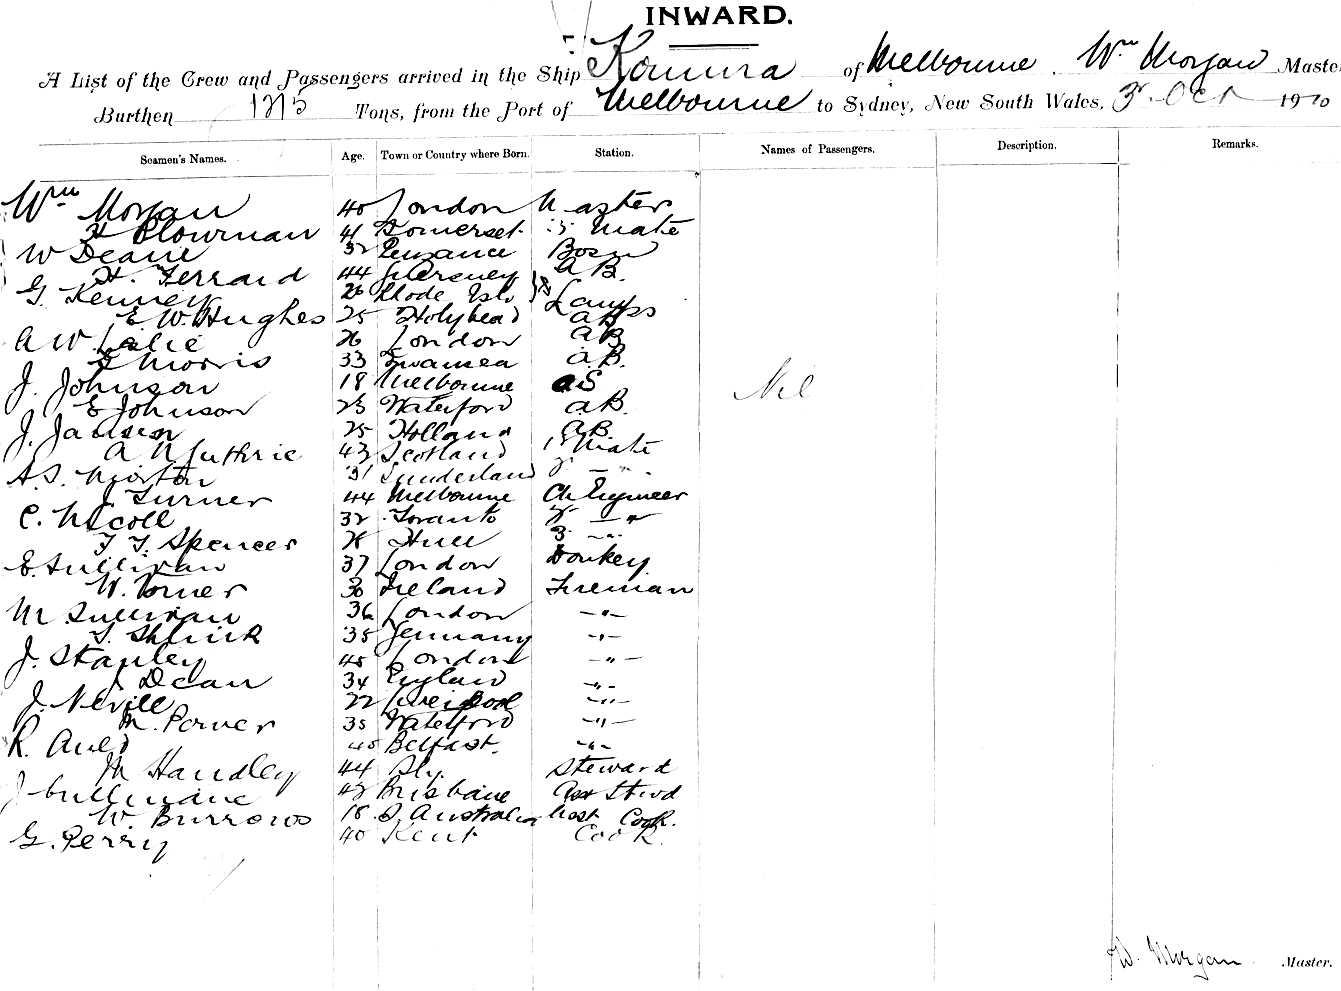 INWARD.
A List of the Crew and Passengers arrived in the Ship Komura of Melbourne. Wm Morgan Master
Burthen Tons, from the Port of Melbourne to Sydney, New South Wales, 3r Oct 1910
Seamen's Names. Age. Town or Country where Born. Station. Names of Passengers. Description. Remarks.
Wm Morgan 40 London Master
H Plowman 41 Somerset 3 Mate
W Deane 32 Penzance Bosn
H. Ferrard 44 Guernsey AB.
G. Kenney 26 Rhode Isl Lamps
E W. Hughes 25 Holyhead AB
A W. Leslie 26 London AB
Morris 33 Swansea AB.
J. Johnson 18 Melbourne OS
E Johnson 23 Waterford AB.
Nil
J. Jansen 25 Holland AB
A McGuthrie 43 Scotland 1 Mate
A.S. Morton 31 Sunderland 2 — " —
J Turner 44 Melbourne Ch Engineer
C. Nicoll 32 Toronto 2r — " —
T. Spencer Hull 3 - " -
E. Sullivan 37 London Donkey
W. Torner 30 Ireland Fireman
M Sullivan 36 London — " —
35 Germany - " -
J. Stanley 45 London — " —
J Dean 34 England - " -
J. Nevill 22 Liverpool - " -
M. Power 35 Waterford - " -
R. Auld 40 Belfast. - " -
M Handley 44 Steward
J Cullinane 43 Brisbane Asst Stwd
W. Burrows 18 S. Australia Asst Cook.
G. Perry 40 Kent Cook.
W. Morgan Master.